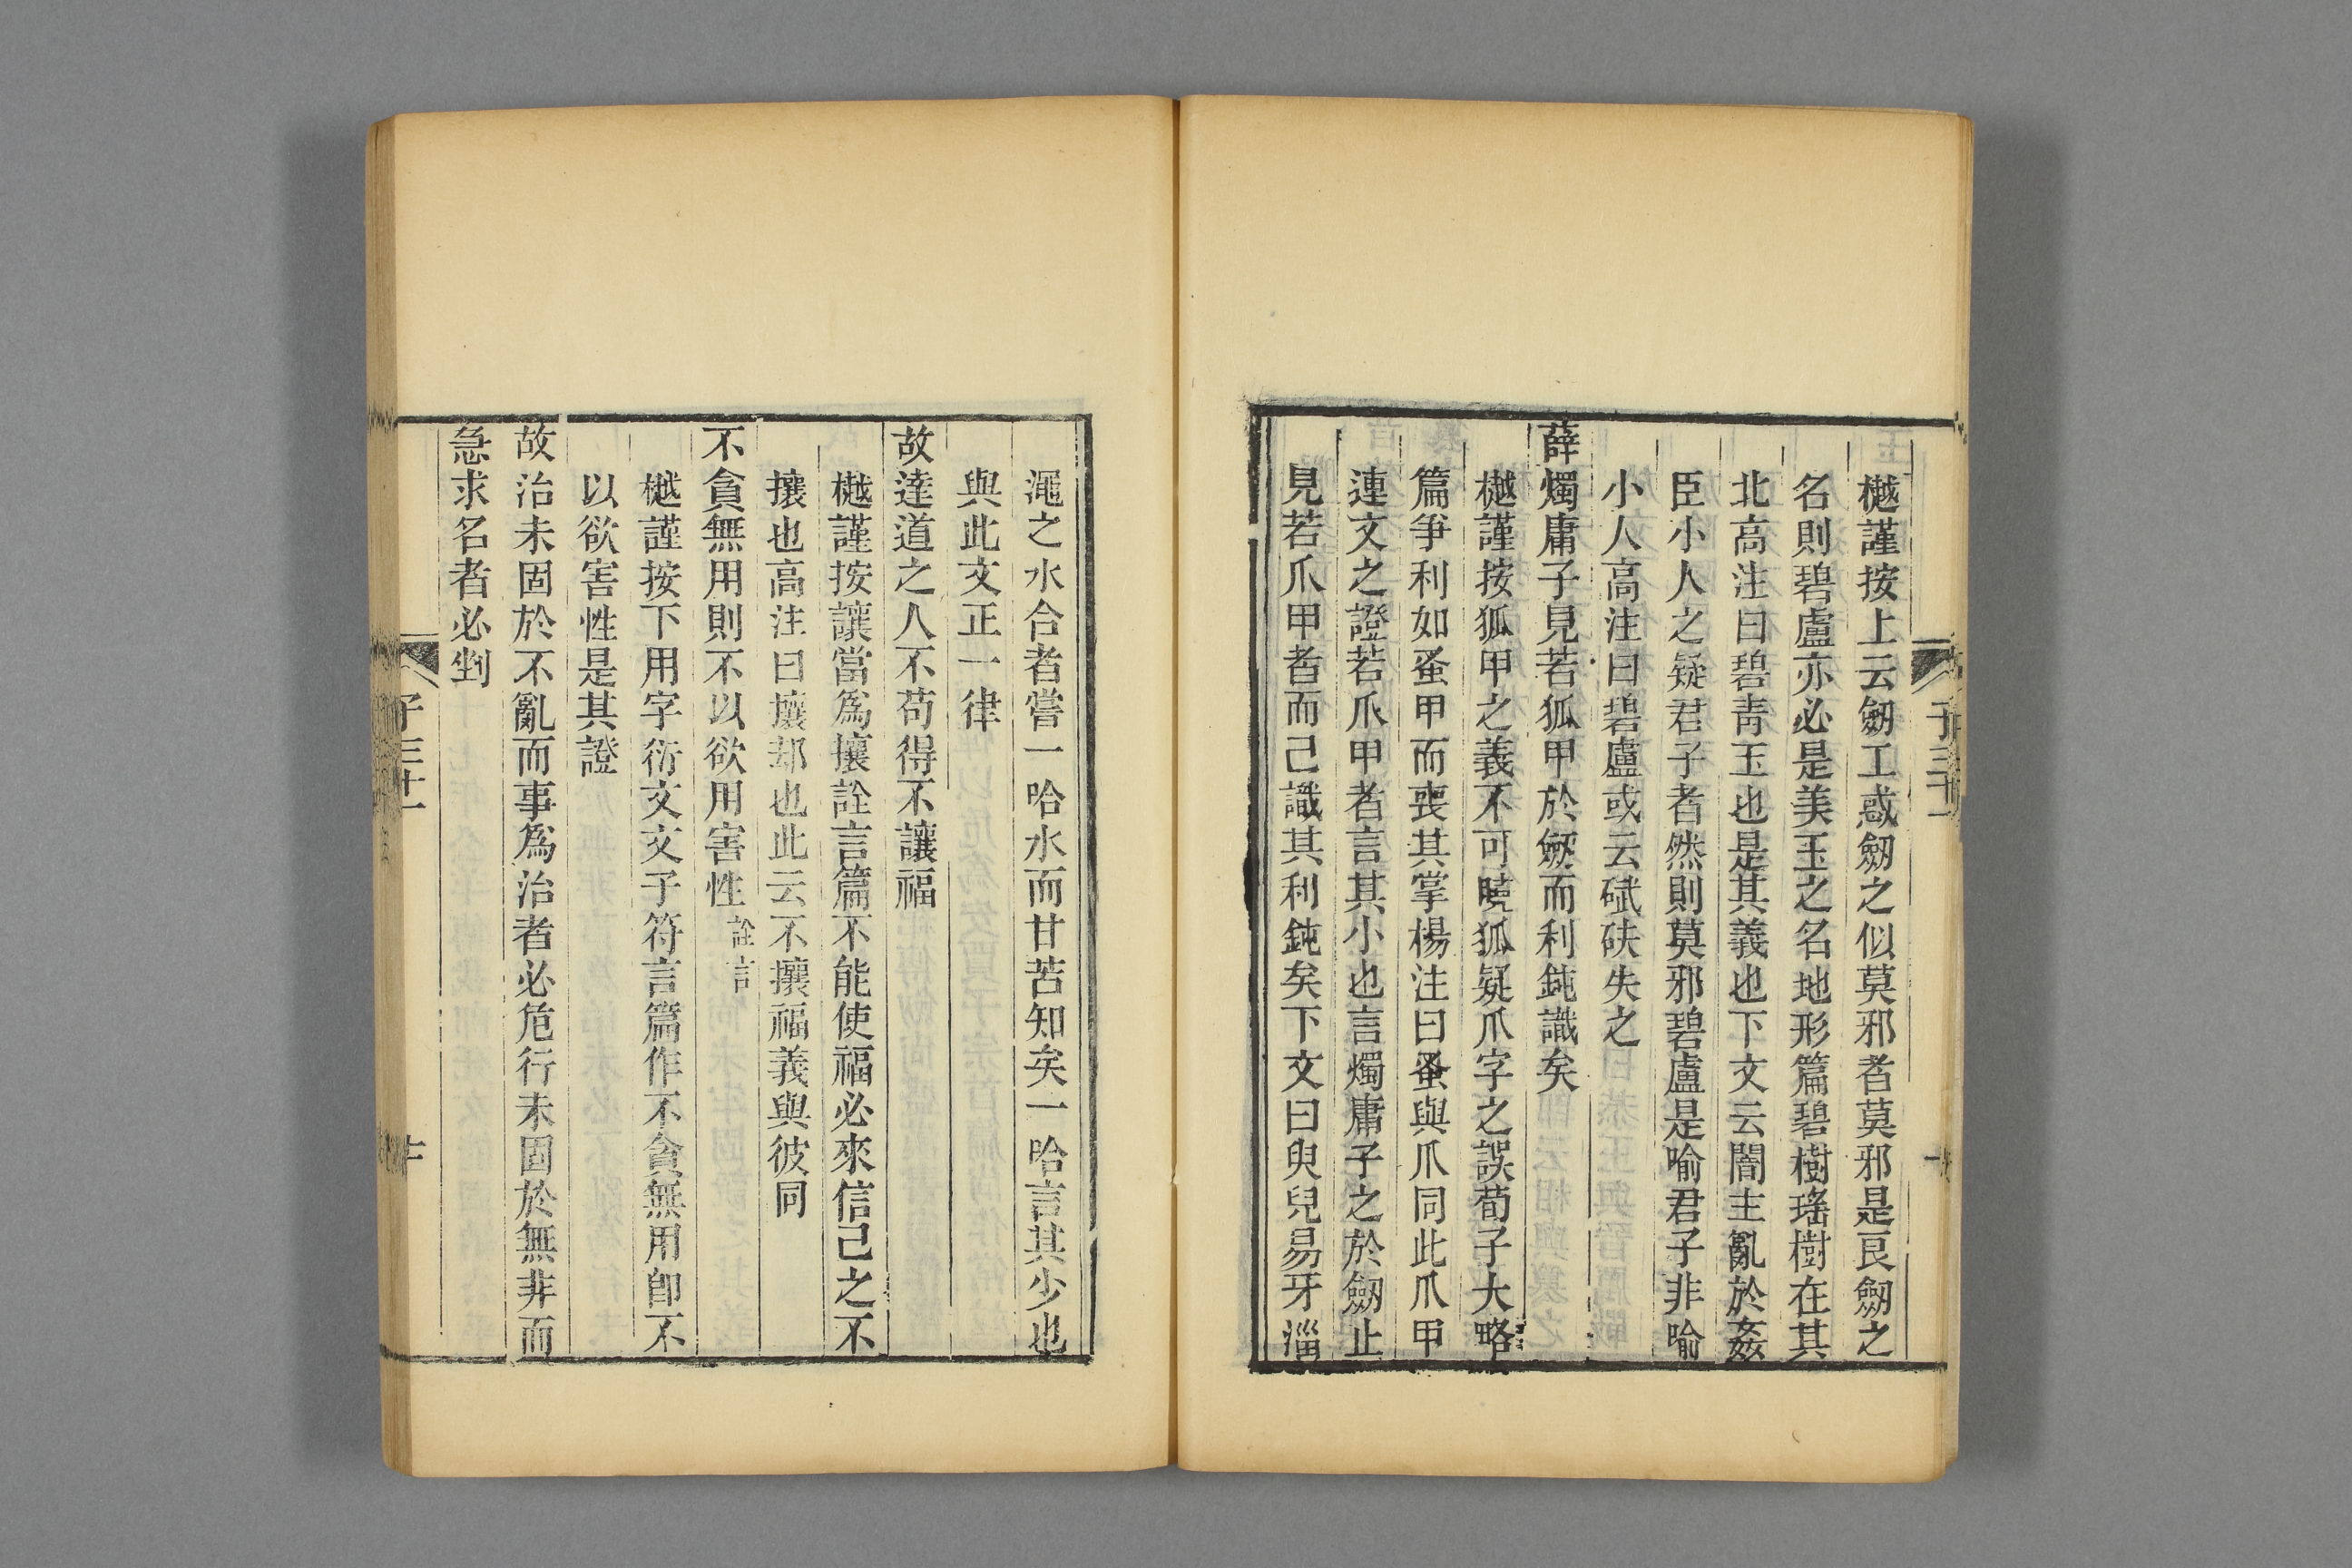 樾謹按上云劒工惑劒之似莫邪者莫邪是良劒之
名則碧盧亦必是美玉之名地形篇碧樹瑤樹在其
北高注曰碧青玉也是其義也下文云闇主亂於姦
臣小人之疑君子者然則莫邪碧盧是喻君子非喻
小人高注曰碧盧或云碔砆失之
薛燭庸子見若狐甲於劒而利鈍識矣
樾謹按狐甲之義不可曉狐疑爪字之誤荀子大略
篇爭利如蚤甲而喪其掌楊注曰蚤與爪同此爪甲
連文之證若爪甲者言其小也言燭庸子之於劒止
見若爪甲者而己識其利鈍矣下文曰臾兒易牙淄
澠之水合者嘗一哈水而甘苦知矣一哈言其少也
與此文正一律
故達道之人不苟得不讓福
樾謹按讓當爲攘詮言篇不能使福必來信己之不
攘也高注曰攘却也此云不攘福義與彼同
不貪無用則不以欲用害性詮言
樾謹按下用字衍文文子符言篇作不貪無用卽不
以欲害性是其證
故治未固於不亂而事爲治者必危行未固於無非而
急求名者必剉
子三十一